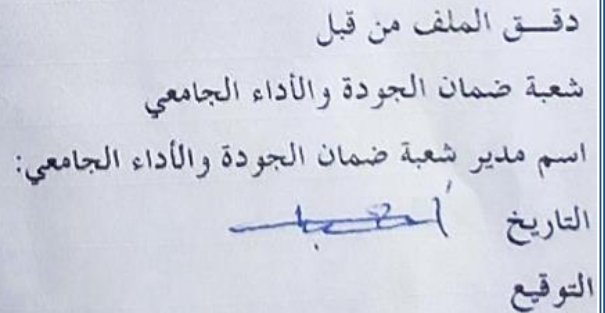 دقـــق الملف من قبل
شعبة ضمان الجودة والأداء الجامعي
اسم مدير شعبة ضمان الجودة والأداء الجامعي:
التاريخ
التوقيع